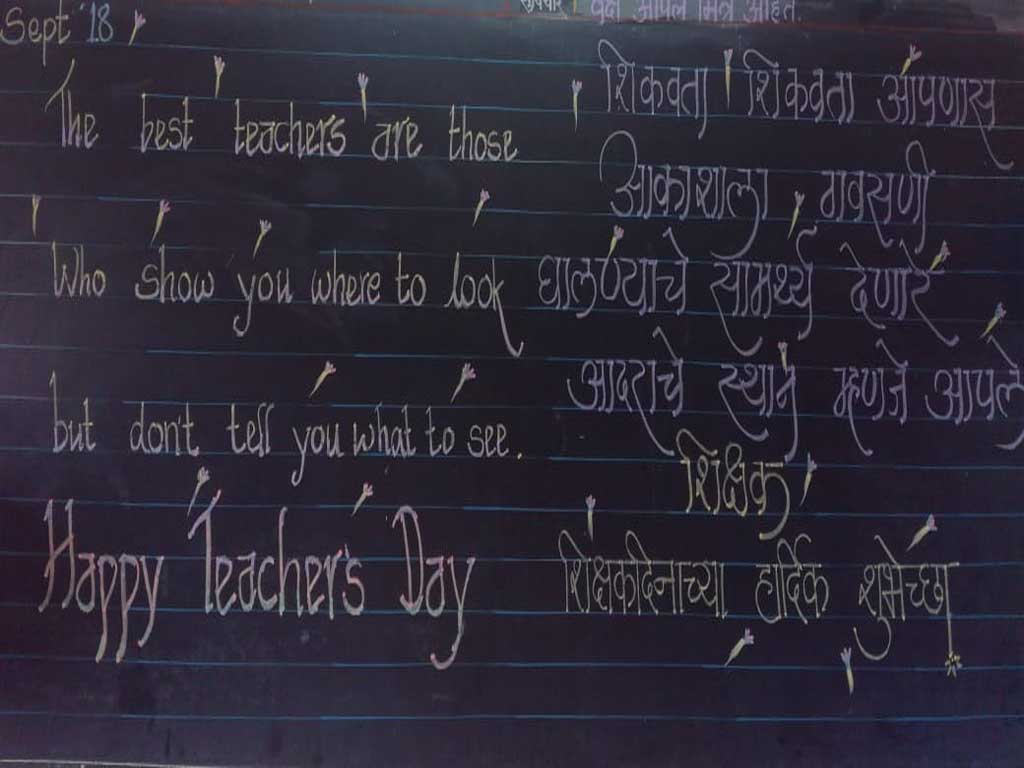 Sept '18
सुविचार वृक्ष आपले मित्र आहेत.
The best teachers are those
Who show you where to look
but don't tell you what to see.
Happy Teacher's Day
शिकवता शिकवता आपणास
आकाशाला गवसणी
घालण्याचे सामर्थ्य देणारे
आदराचे स्थान म्हणजे आपले
शिक्षक
शिक्षकदिनाच्या हार्दिक शुभेच्छा